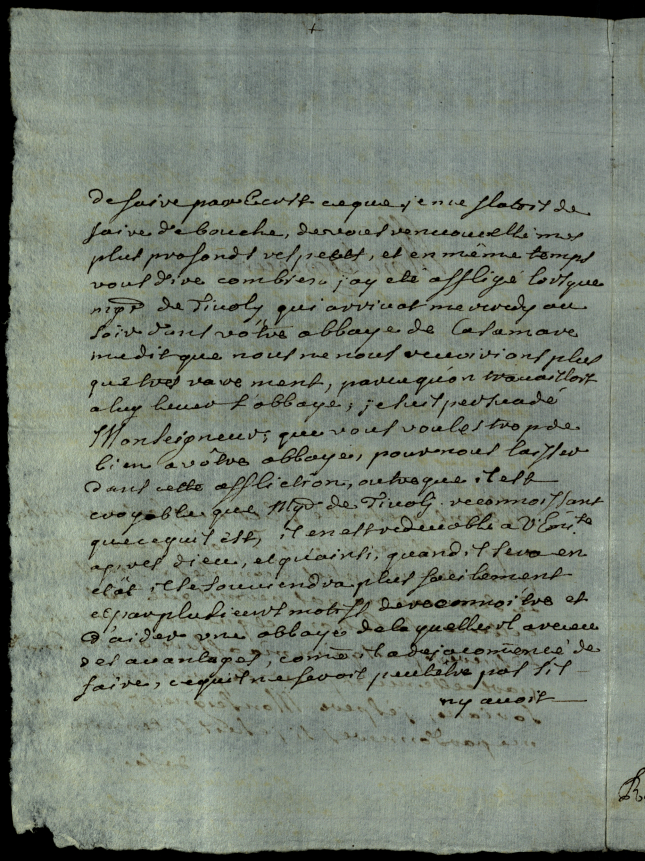 +
de faire par Ecrit ce que je me flatois de
faire de bouche, de vous renouveller mes
plus profonds respects, et en même temps
vous dire combien j'ay eté affligé lorsque
mgr de Tivoly qui arrivat mercredy au
soir dans vôtre abbaye de Casamare
me dit que nous ne nous reverrions plus
que tres rarement, parce qu'on travailloit
a luy lever l'abbaye; je suis persuadé
Monseigneur, que vous voules trop de
bien a vôtre abbaye, pour nous laisser
dans cette affliction, outre que il est
croyable que Mgr de Tivoly reconnoissant
que ce qu'il est, il en est redevable a V.
apres dieu, et qu'ainsi, quand il sera en
etat il se souviendra plus facilement
et par plusieurs motifs de reconnoitre et
d'aider une abbaye de laquelle il a receu
des avantages, come il a deja comencé de
faire, ce qu'il ne feroit peutétre pas s'il
n'y avoit
R